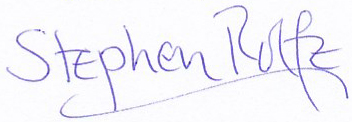 Stephen Rolfe